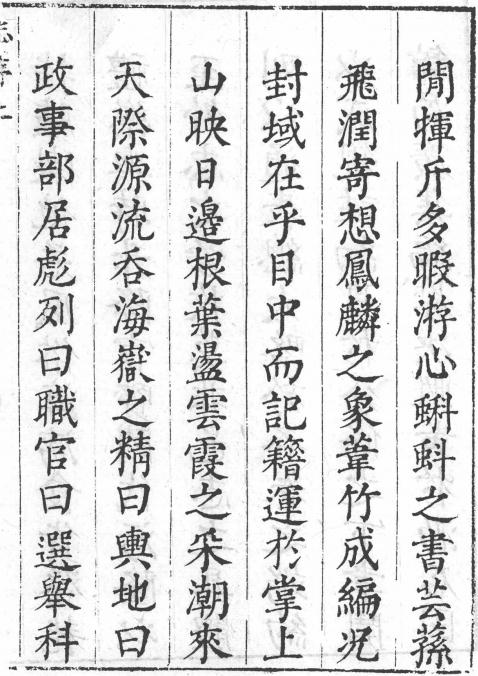 閒揮斤多暇游心蝌蚪之書芸蓀
飛潤寄想鳳麟之象葦竹成編况
封域在乎目中而記籍運於掌上
山映日邉根葉盪雲霞之采潮來
天際源流呑海嶽之精曰輿地曰
政事部居彪列曰職官曰選舉科